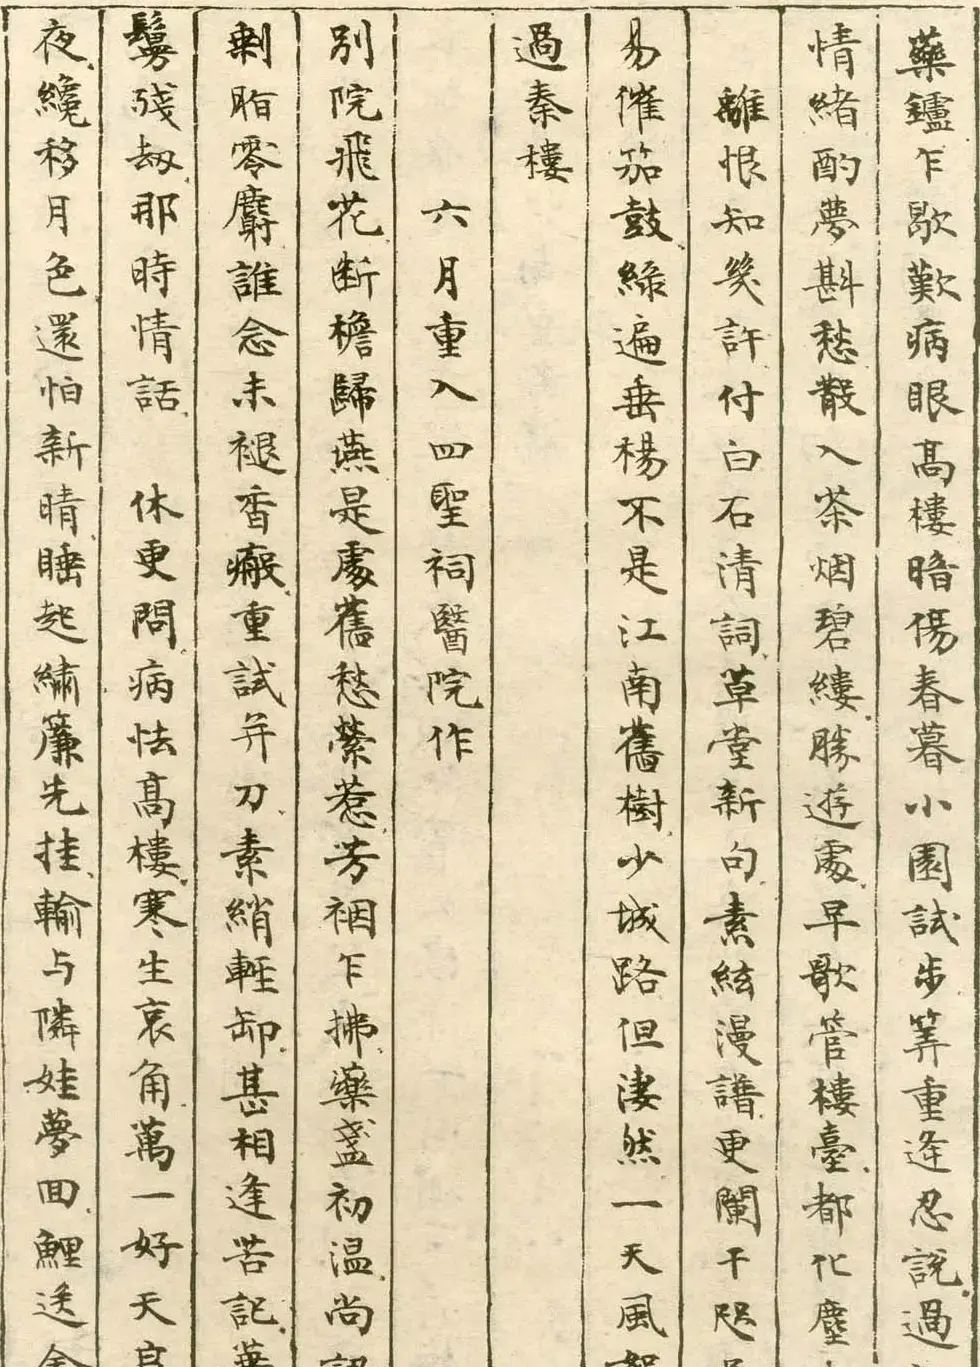 藥鑪乍歇歎病眼高樓暗傷春暮小園試步筭重逢忍說過
情緒酌夢斟愁散入茶烟碧縷勝遊處早歌管樓臺都化塵
離恨知幾許付白石清詞草堂新句素絃漫譜更闌干咫
易催笳鼓綠遍垂楊不是江南舊樹少城路但淒然一天風
過秦樓
六月重入四聖祠醫院作
別院飛花斷檐歸燕是處舊愁縈惹芳裀乍拂藥盞初温尚
剩脂零麝誰念未褪香瘢重試并刀素綃輕卸甚相逢苦記
鬢殘劫那時情話 休更問病怯高樓寒生哀角萬一好天
夜纔移月色還怕新晴睡起繡簾先挂輸与隣娃夢回鯉送